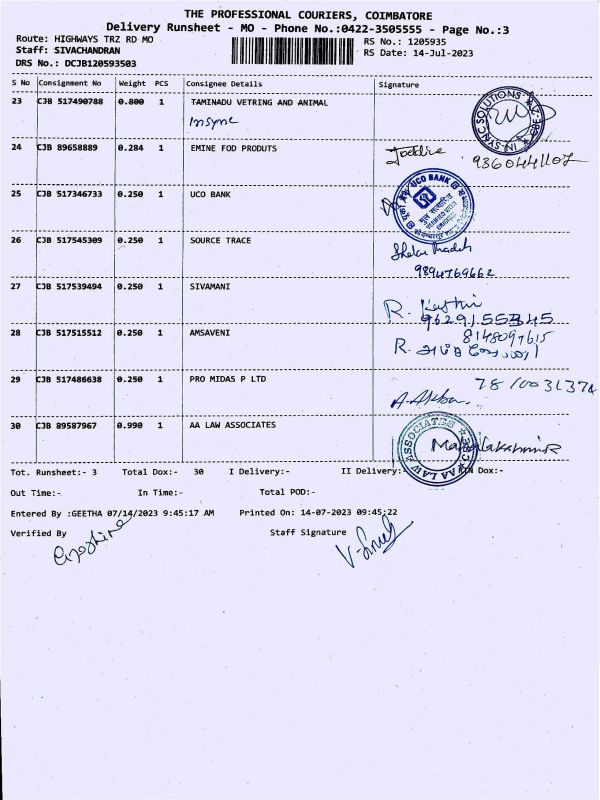 THE PROFESSIONAL COURIERS, COIMBATORE
Delivery Runsheet - MO - Phone No.:0422-3505555 - Page No.:3
Route: HIGHWAYS TRZ RD MO
RS No.: 1205935
Staff: SIVACHANDRAN
RS Date: 14-Jul-2023
DRS No.: DCJB120593503
S No Consignment No Weight PCS Consignee Details Signature
23 CJB 517490788 0.800 1 TAMINADU VETRING AND ANIMAL
Insync
IN-SYNC SOLUTIONS
24 CJB 89658889 0.284 1 EMINE FOD PRODUTS
9360441107
25 CJB 517346733 0.250 1 UCO BANK
UCO BANK
26 CJB 517545309 0.250 1 SOURCE TRACE
9894769662
27 CJB 517539494 0.250 1 SIVAMANI
R.
9629155345
28 CJB 517515512 0.250 1 AMSAVENI
8148097615
R.
29 CJB 517486638 0.250 1 PRO MIDAS P LTD
30 CJB 89587967 0.990 1 AA LAW ASSOCIATES
AA LAW ASSOCIATES
Mahalakshmi R
Tot. Runsheet:- 3 Total Dox:- 30 I Delivery:- II Delivery:- RTN Dox:-
Out Time:- In Time:- Total POD:-
Entered By :GEETHA 07/14/2023 9:45:17 AM Printed On: 14-07-2023 09:45:22
Verified By Staff Signature